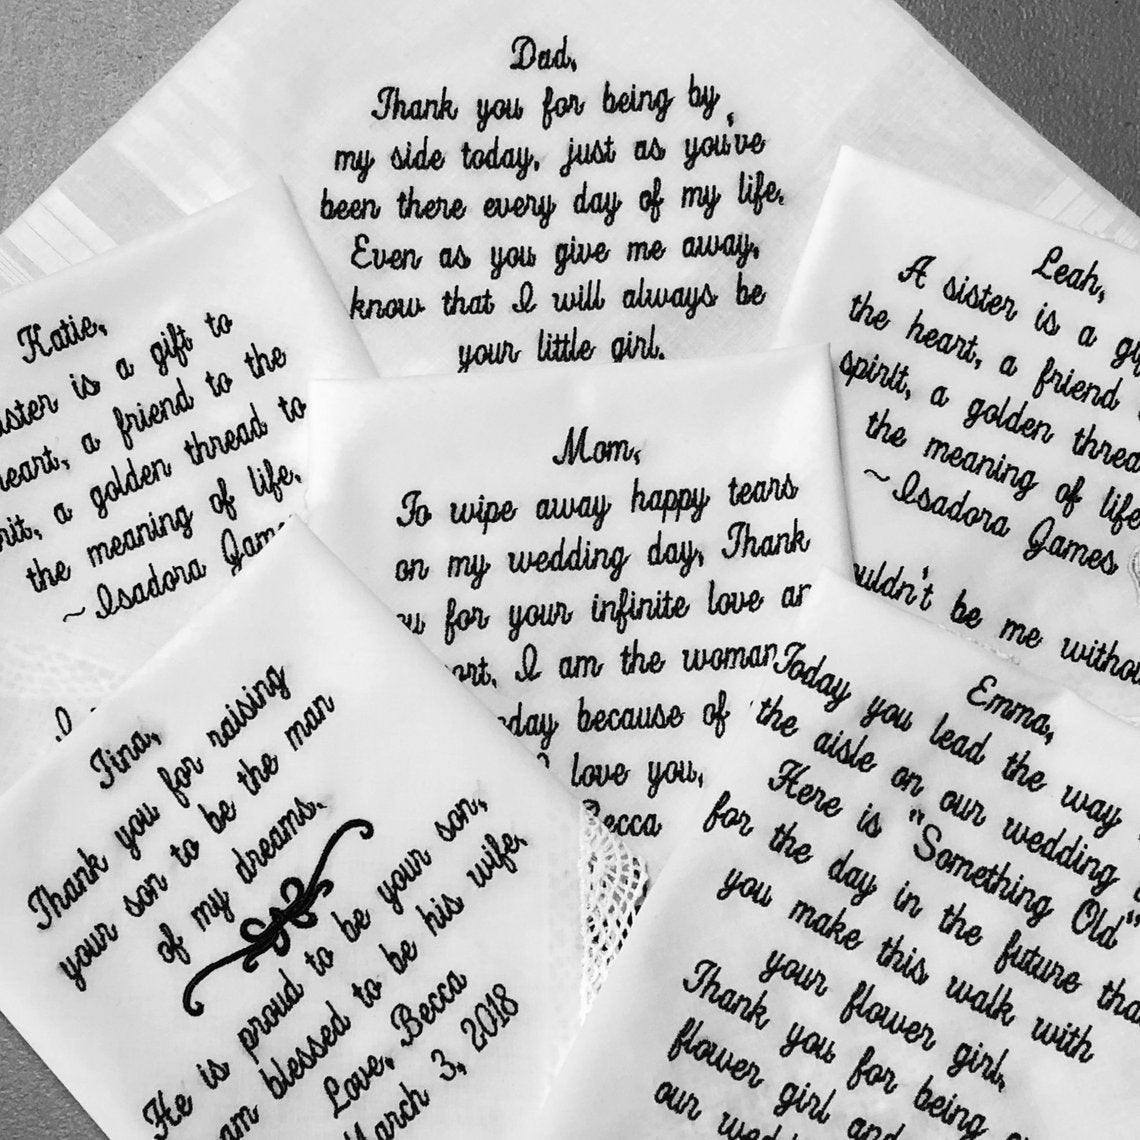 Dad,
Thank you for being by
my side today, just as you've
been there every day of my life.
Even as you give me away,
know that I will always be
your little girl.
Katie,
sister is a gift to
heart, a friend to the
a golden thread to
the meaning of life.
~Isadora
Leah,
A sister is a
the heart, a friend
spirit, a golden
the meaning of life
~Isadora Games
be me
Mom,
To wipe away happy tears
on my wedding day, Thank
for your infinite love
I am the woman
because of
love you,
Becca
Tina,
Thank you for raising
your son to be the man
of my dreams.
He is proud to be your son,
am blessed to be his wife.
Love, Becca
March 3, 2018
Emma,
Today you lead the way
the aisle on our wedding
Here is "Something Old"
for the day in the future
you make this walk with
your flower girl,
Thank you for being
flower girl and
our